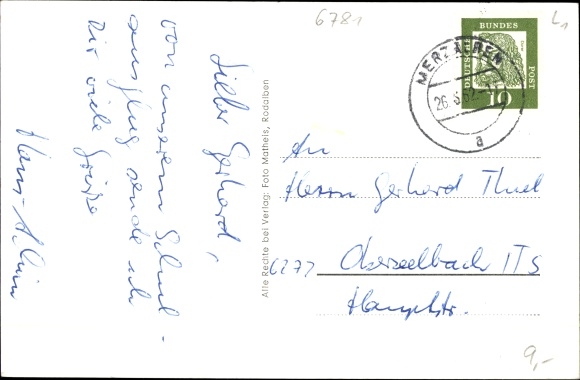 6781
L1
DEUTSCHE
BUNDES
POST
10
MERZALBEN
26.
a
Lieber Gerhard,
von unserem Schul-
ausflug sende ich
Dir viele Grüße
Hans-
Alle Rechte bei Verlag: Foto Matheis, Rodalben
An
Herrn Gerhard Thiel
6277 Oberseelbach ITS
Hauptstr.
9,-